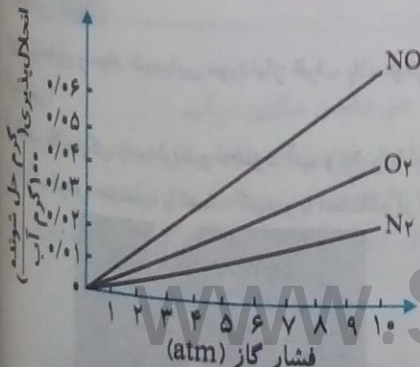 انحلال‌پذیری (گرم حل شونده / ۱۰۰ گرم آب)
۰/۰۶
۰/۰۵
۰/۰۴
۰/۰۳
۰/۰۲
۰/۰۱
۰
NO
O₂
N₂
۱ ۲ ۳ ۴ ۵ ۶ ۷ ۸ ۹ ۱۰
فشار گاز (atm)
www.s